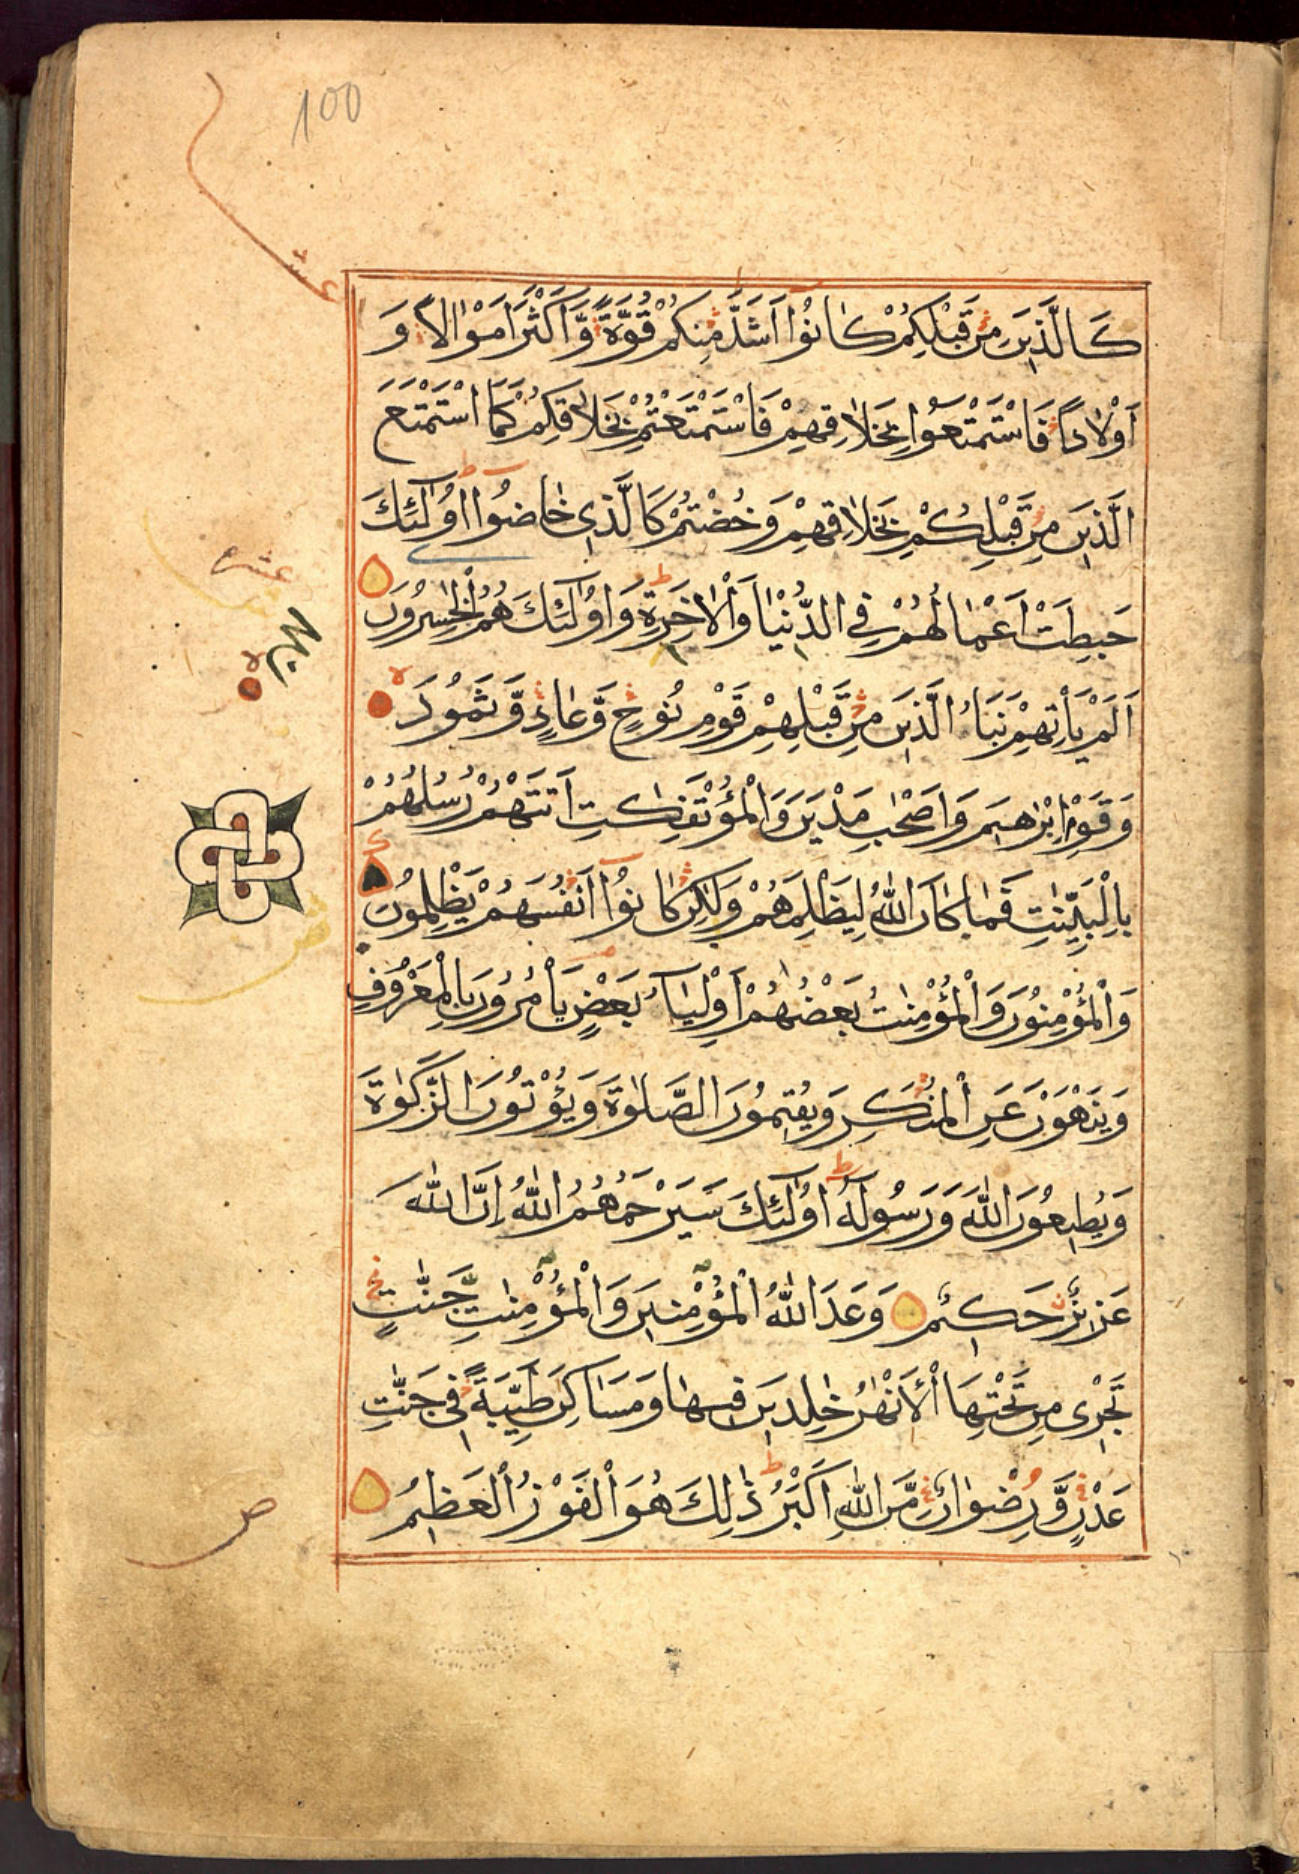 100
كَالَّذِيْنَ مِنْ قَبْلِكُمْ كَانُوْا اَشَدَّ مِنْكُمْ قُوَّةً وَّاَكْثَرَ اَمْوَالًا وَ
اَوْلَادًا فَاسْتَمْتَعُوْا بِخَلَاقِهِمْ فَاسْتَمْتَعْتُمْ بِخَلَاقِكُمْ كَمَا اسْتَمْتَعَ
الَّذِيْنَ مِنْ قَبْلِكُمْ بِخَلَاقِهِمْ وَخُضْتُمْ كَالَّذِى خَاضُوْا اُولٰٓئِكَ
حَبِطَتْ اَعْمَالُهُمْ فِى الدُّنْيَا وَالْاٰخِرَةِ وَاُولٰٓئِكَ هُمُ الْخٰسِرُوْنَ
اَلَمْ يَأْتِهِمْ نَبَاُ الَّذِيْنَ مِنْ قَبْلِهِمْ قَوْمِ نُوْحٍ وَّعَادٍ وَّثَمُوْدَ
وَقَوْمِ اِبْرٰهِيْمَ وَاَصْحٰبِ مَدْيَنَ وَالْمُؤْتَفِكٰتِ اَتَتْهُمْ رُسُلُهُمْ
بِالْبَيِّنٰتِ فَمَا كَانَ اللّٰهُ لِيَظْلِمَهُمْ وَلٰكِنْ كَانُوْا اَنْفُسَهُمْ يَظْلِمُوْنَ
وَالْمُؤْمِنُوْنَ وَالْمُؤْمِنٰتُ بَعْضُهُمْ اَوْلِيَآءُ بَعْضٍ يَأْمُرُوْنَ بِالْمَعْرُوْفِ
وَيَنْهَوْنَ عَنِ الْمُنْكَرِ وَيُقِيْمُوْنَ الصَّلٰوةَ وَيُؤْتُوْنَ الزَّكٰوةَ
وَيُطِيْعُوْنَ اللّٰهَ وَرَسُوْلَهُ اُولٰٓئِكَ سَيَرْحَمُهُمُ اللّٰهُ اِنَّ اللّٰهَ
عَزِيْزٌ حَكِيْمٌ وَعَدَ اللّٰهُ الْمُؤْمِنِيْنَ وَالْمُؤْمِنٰتِ جَنّٰتٍ
تَجْرِى مِنْ تَحْتِهَا الْاَنْهٰرُ خٰلِدِيْنَ فِيْهَا وَمَسَاكِنَ طَيِّبَةً فِى جَنّٰتِ
عَدْنٍ وَّرِضْوَانٌ مِّنَ اللّٰهِ اَكْبَرُ ذٰلِكَ هُوَ الْفَوْزُ الْعَظِيْمُ